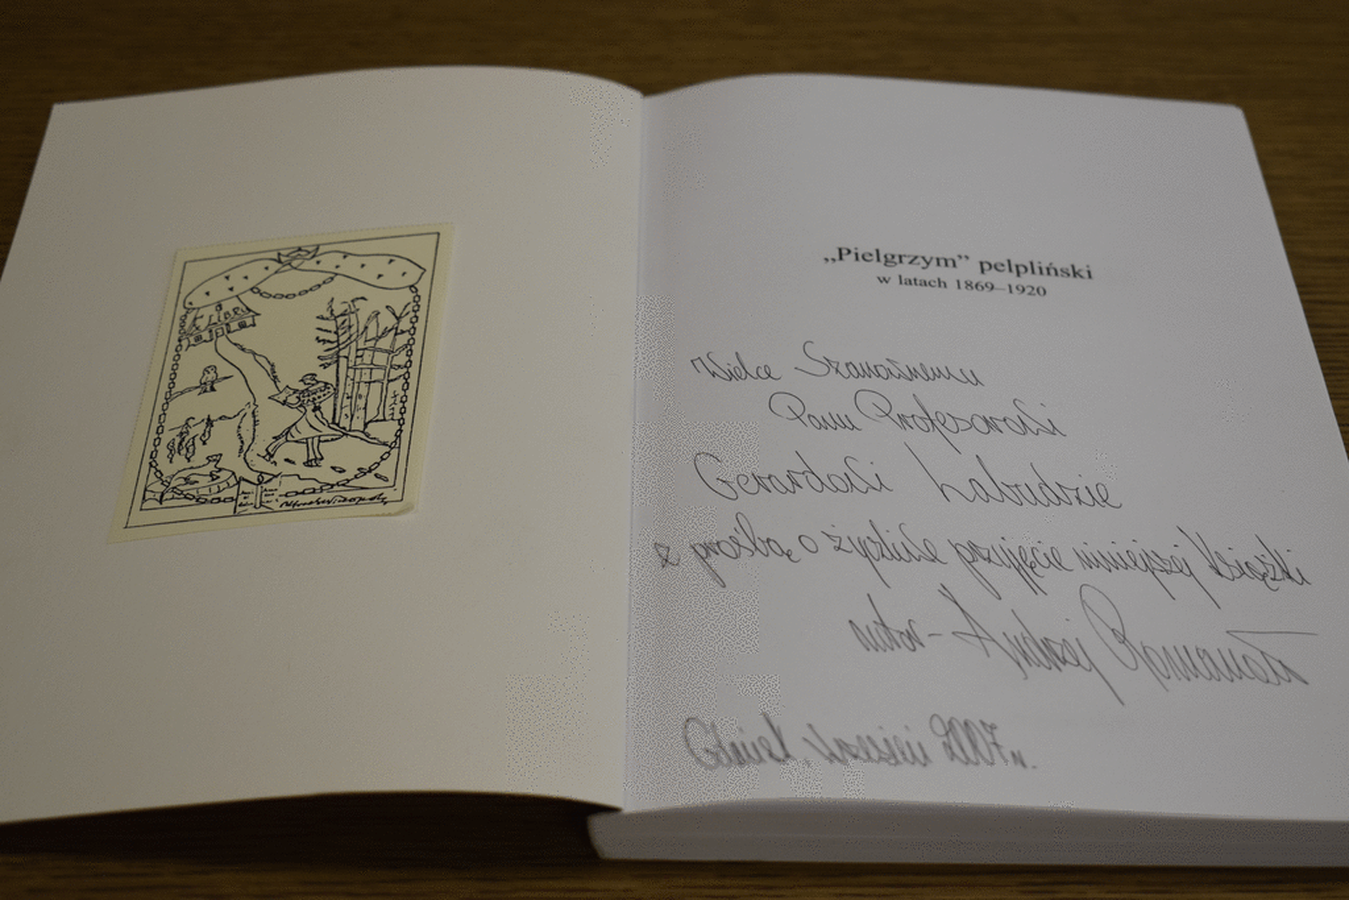 EX LIBRIS
„Pielgrzym” pelpliński
w latach 1869–1920
Wielce Szanownemu
Panu Profesorowi
Gerardowi Labudzie
z prośbą o życzliwe przyjęcie niniejszej książki
autor - Andrzej Romanow
Gdańsk, wrzesień 2007 r.